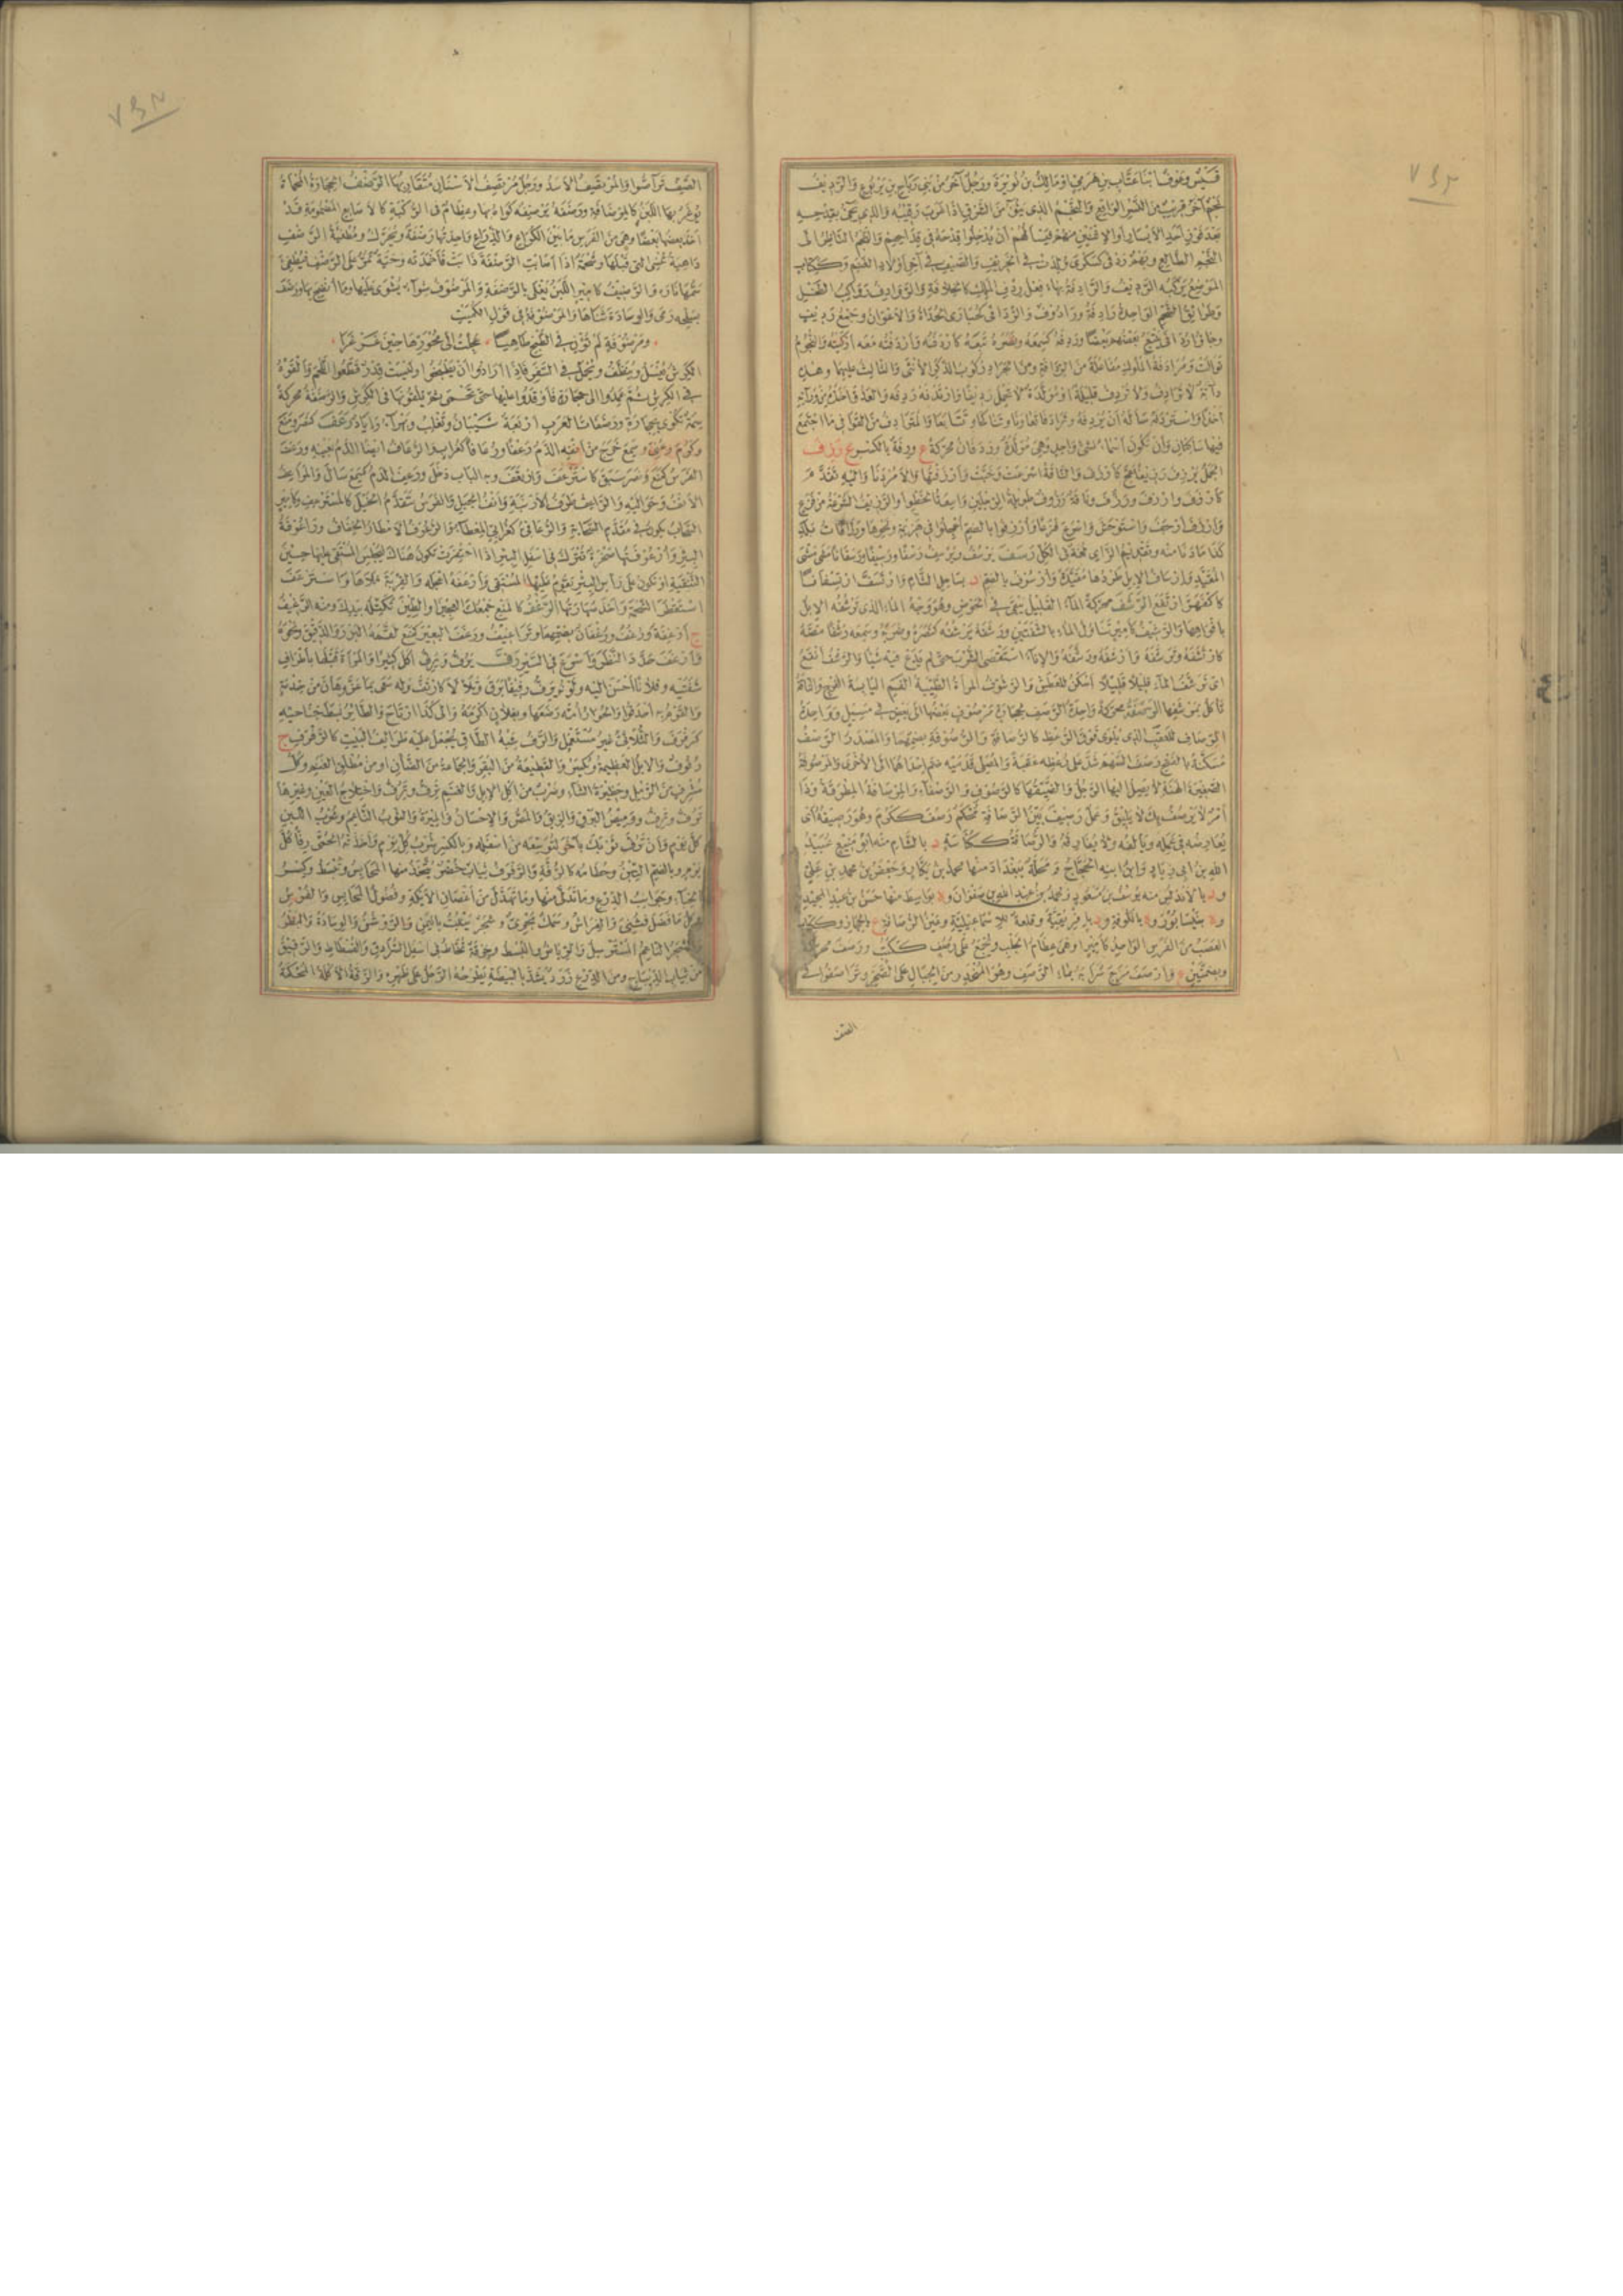 قيس وعوف ابنا عتاب بن هرمي او مالك بن نويرة ورجل آخر من بني رباح بن يربوع والرديف
نجم آخر قريب من النسر الواقع والنجم الذي ينوء من المشرق اذا غرب رقيبه والذي يجيء بقدحه
بعد فوز احد الايسار او الاثنين منهم فيسألهم ان يدخلوا قدحه في قداحهم والنجم الناظر الى
النجم الطالع وبهم ردفى كسكرى
الموضع يركبه الرديف والردافة بهاء فعل ردف الملك كالخلافة والروادف رواكيب النخل
وطرائق الشحم الواحدة رادفة ورادوف والردافى كحبارى الحداة والاعوان وجمع رديف
وجاؤا ردافى يتبع بعضهم بعضا وردفه كسمعه ونصره تبعه كاردفه واردفته معه اركبته والنجوم
توالت ومرادفة الملوك مفاعلة من الردافة ومن الجراد ركوب الذكر الانثى والثالث عليهما وهذه
دابة لا ترادف ولا تردف قليلة او مولدة لا تحمل رديفا وارتدفه ردفه والعدو اخذه من ورائه
اخذا واستردفه سأله ان يردفه وترادفا تعاونا وتناكحا وتتابعا والمترادف من القوافي ما اجتمع
فيها ساكنان وان تكون اسماء لشيء واحد وهي مولدة وردفان محركة ع وردفة بالكسر ع رزف
الجمل يرزف رزيفا عج كارزف والناقة اسرعت وخبت وارزفتها والامر دنا واليه تقدم
كارزف وارزف ورزف وناقة رزوف طويلة الرجلين واسعة الخطو والرزيف السرعة من فزع
وارزف ارجف واستوحش واسرع فزعا
كذا ما دنا منه رسف يرسف ويرسف رسفا ورسيفا ورسفانا مشى مشي
المقيد وارساف الابل طردها مقيدة وارسوف بالضم د بساحل الشام وارتسف ارتسافا
كاكفهر ارتفع الرشف محركة الماء القليل يبقى في الحوض وهو وجه الماء الذي ترشفه الابل
بافواهها والرشيف كامير تناول الماء بالشفتين ورشفه يرشفه كنصره وضربه وسمعه رشفا مصه
كارتشفه وترشفه وارشفه ورشفه والاناء استقصى الشرب حتى لم يدع فيه شيئا والرشف انقع
اي ترشف الماء قليلا قليلا اسكن للعطش والرشوف المرأة الطيبة الفم اليابسة الفرج والناقة
تأكل بمشفرها الرصفة محركة واحدة الرصف لحجارة مرصوف بعضها الى بعض في مسيل وواحدة
الرصاف للعقب الذي يلوى فوق الرعظ كالرصافة والرصوفة بضمهما والمصدر الرصف
مسكنة بالفتح رصف السهم شد على رعظه عقبة والمصلي قدميه ضم احداهما الى الاخرى والمرصوفة
الصغيرة الهنة لا يصل اليها الرجل والضيقتها كالرصوف والرصفاء والمرصافة المطرقة وذا
امر لا يرصف بك لا يليق وعمل رصيف بين الرصافة محكم رصف ككرم وهو رصيفه اي
يعارضه في عمله ويألفه ولا يفارقه والرصافة ككناسة د بالشام منه ابو منيع عبيد
الله بن ابي زياد وابن ابنه الحجاج ومحلة ببغداد منها محمد بن بكار وجعفر بن محمد بن علي
ود بالاندلس منه يوسف بن مسعود ومحمد بن عبد الله بن صفوان وة بواسط منها حسن بن عبد المجيد
وة بنيسابور وة بالكوفة ود بافريقية وقلعة للاسماعيلية وعين الرصافة ع بالحجاز وككتاب
العصب من الفرس الواحد كامير او هي عظام الجنب ويجمع على رصف ككتب ورصف محركة
وبضمتين ع وارصف مزج شرابه بماء الرصف وهو المنحدر من الجبال على الصخر وتراصفوا في
الصف
الصف تراصوا والمرتصف الاسد ورجل مرتصف الاسنان متقاربها الرضف الحجارة المحماة
يوغر بها اللبن كالمرضافة ورضفه يرضفه كواه بها وعظام في الركبة كالاصابع المضمومة قد
اخذ بعضها بعضا وهي من الفرس ما بين الكراع والذراع واحدتها رضفة وتحرك ومطفئة الرضف
داهية تنسي التي قبلها وشحمة اذا اصابت الرضفة ذابت فاخمدته وحية تمر على الرضف فيطفئ
سمها ناره والرضيف كامير اللبن يغلى بالرضفة والمرضوف شواء يشوى عليها وما انضج بها ورضف
بسلحه رمى والوسادة ثناها والمرضوفة في قول الكميت
ومرضوفة لم تؤن في الطبخ طاهيا * عجلت الى محورها حين غرغرا
الكرش يغسل وينظف ويحمل في السفر فاذا ارادوا ان يطبخوا وليست قدر قطعوا اللحم والقوه
في الكرش ثم عمدوا الى حجارة فاوقدوا عليها حتى تحمى ثم يلقونها في الكرش والرضفة محركة
سمة تكوى بحجارة ورضفات العرب اربعة شيبان وتغلب وبهراء واياد رعف كنصر ومنع
وكرم وعني وسمع خرج من انفه الدم رعفا ورعافا كغراب والرعاف ايضا الدم بعينه ورعف
الفرس كمنع ونصر سبق كاسترعف وارتعف وبه الباب دخل ورعف الدم كسمع سال والمراعف
الانف وحواليه والراعف طرف الارنبة وانف الجبل والفرس يتقدم الخيل كالمسترعف وكامير
السحاب يكون في مقدم السحابة والرعافي كغرابي المعطاء والرعوف الامطار الخفاف وراعوفة
البئر وارعوفتها صخرة تترك في اسفل البئر اذا احتفرت تكون هناك ليجلس المستقي عليها حين
التنقية او تكون على رأس البئر يقوم عليها المستقي وارعفه اعجله والقربة ملأها واسترعف
استقطر الشحمة واخذ صهارتها الرغف كالمنع جمعك العجين او الطين تكتله بيدك ومنه الرغيف
ج ارغفة ورغف ورغفان بضمهما وتراغيف ورغف البعير كمنع لقمه البزر والدقيق ونحوه
وارغف حدد النظر واسرع في السير رف يرف ويرف اكل كثيرا والمرأة قبلها باطراف
شفتيه وفلانا احسن اليه ولونه يرف رفيفا برق وتلألأ كارتف وله سعى بما عز وهان من خدمة
والقوم به احدقوا والحوار امه رضعها وبفلان اكرمه والى كذا ارتاح والطائر بسط جناحيه
كرفرف والثلاثي غير مستعمل والرف شبه الطاق يجعل عليه طرائف البيت كالرفرف ج
رفوف والابل العظيمة ويكسر والقطيعة من البقر والجماعة من الضأن او من مطلق الغنم وكل
مشرف من الرمل وحظيرة الشاء وضرب من اكل الابل والغنم ترف وترف واختلاج العين وغيرها
ترف وترف ووميض البرق والريق والمص والاحسان والميرة والثوب الناعم وشرب اللبن
كل يوم وان ترف ثوبك بآخر لتوسعه من اسفله وبالكسر شرب كل يوم واخذته الحمى رفا كل
يوم وبالضم التبن وحطامه كالرفة والرفرف ثياب خضر يتخذ منها المحابس وتبسط وكسر
الخباء وجوانب الدرع وما تدلى منها وما تهدل من اغصان الايكة وفضول المحابس والفرش
وكل ما فضل فثني والفراش وسمك بحري وشجر ينبت باليمن والروشن والوسادة والبظر
والشجر الناعم المسترسل والرياش والبسط وخرقة تخاط في اسفل السرادق والفسطاط والرقيق
من ثياب الديباج ومن الدرع زرد يشد بالبيضة يطرحه الرجل على ظهره والرفة الاكلة المحكمة